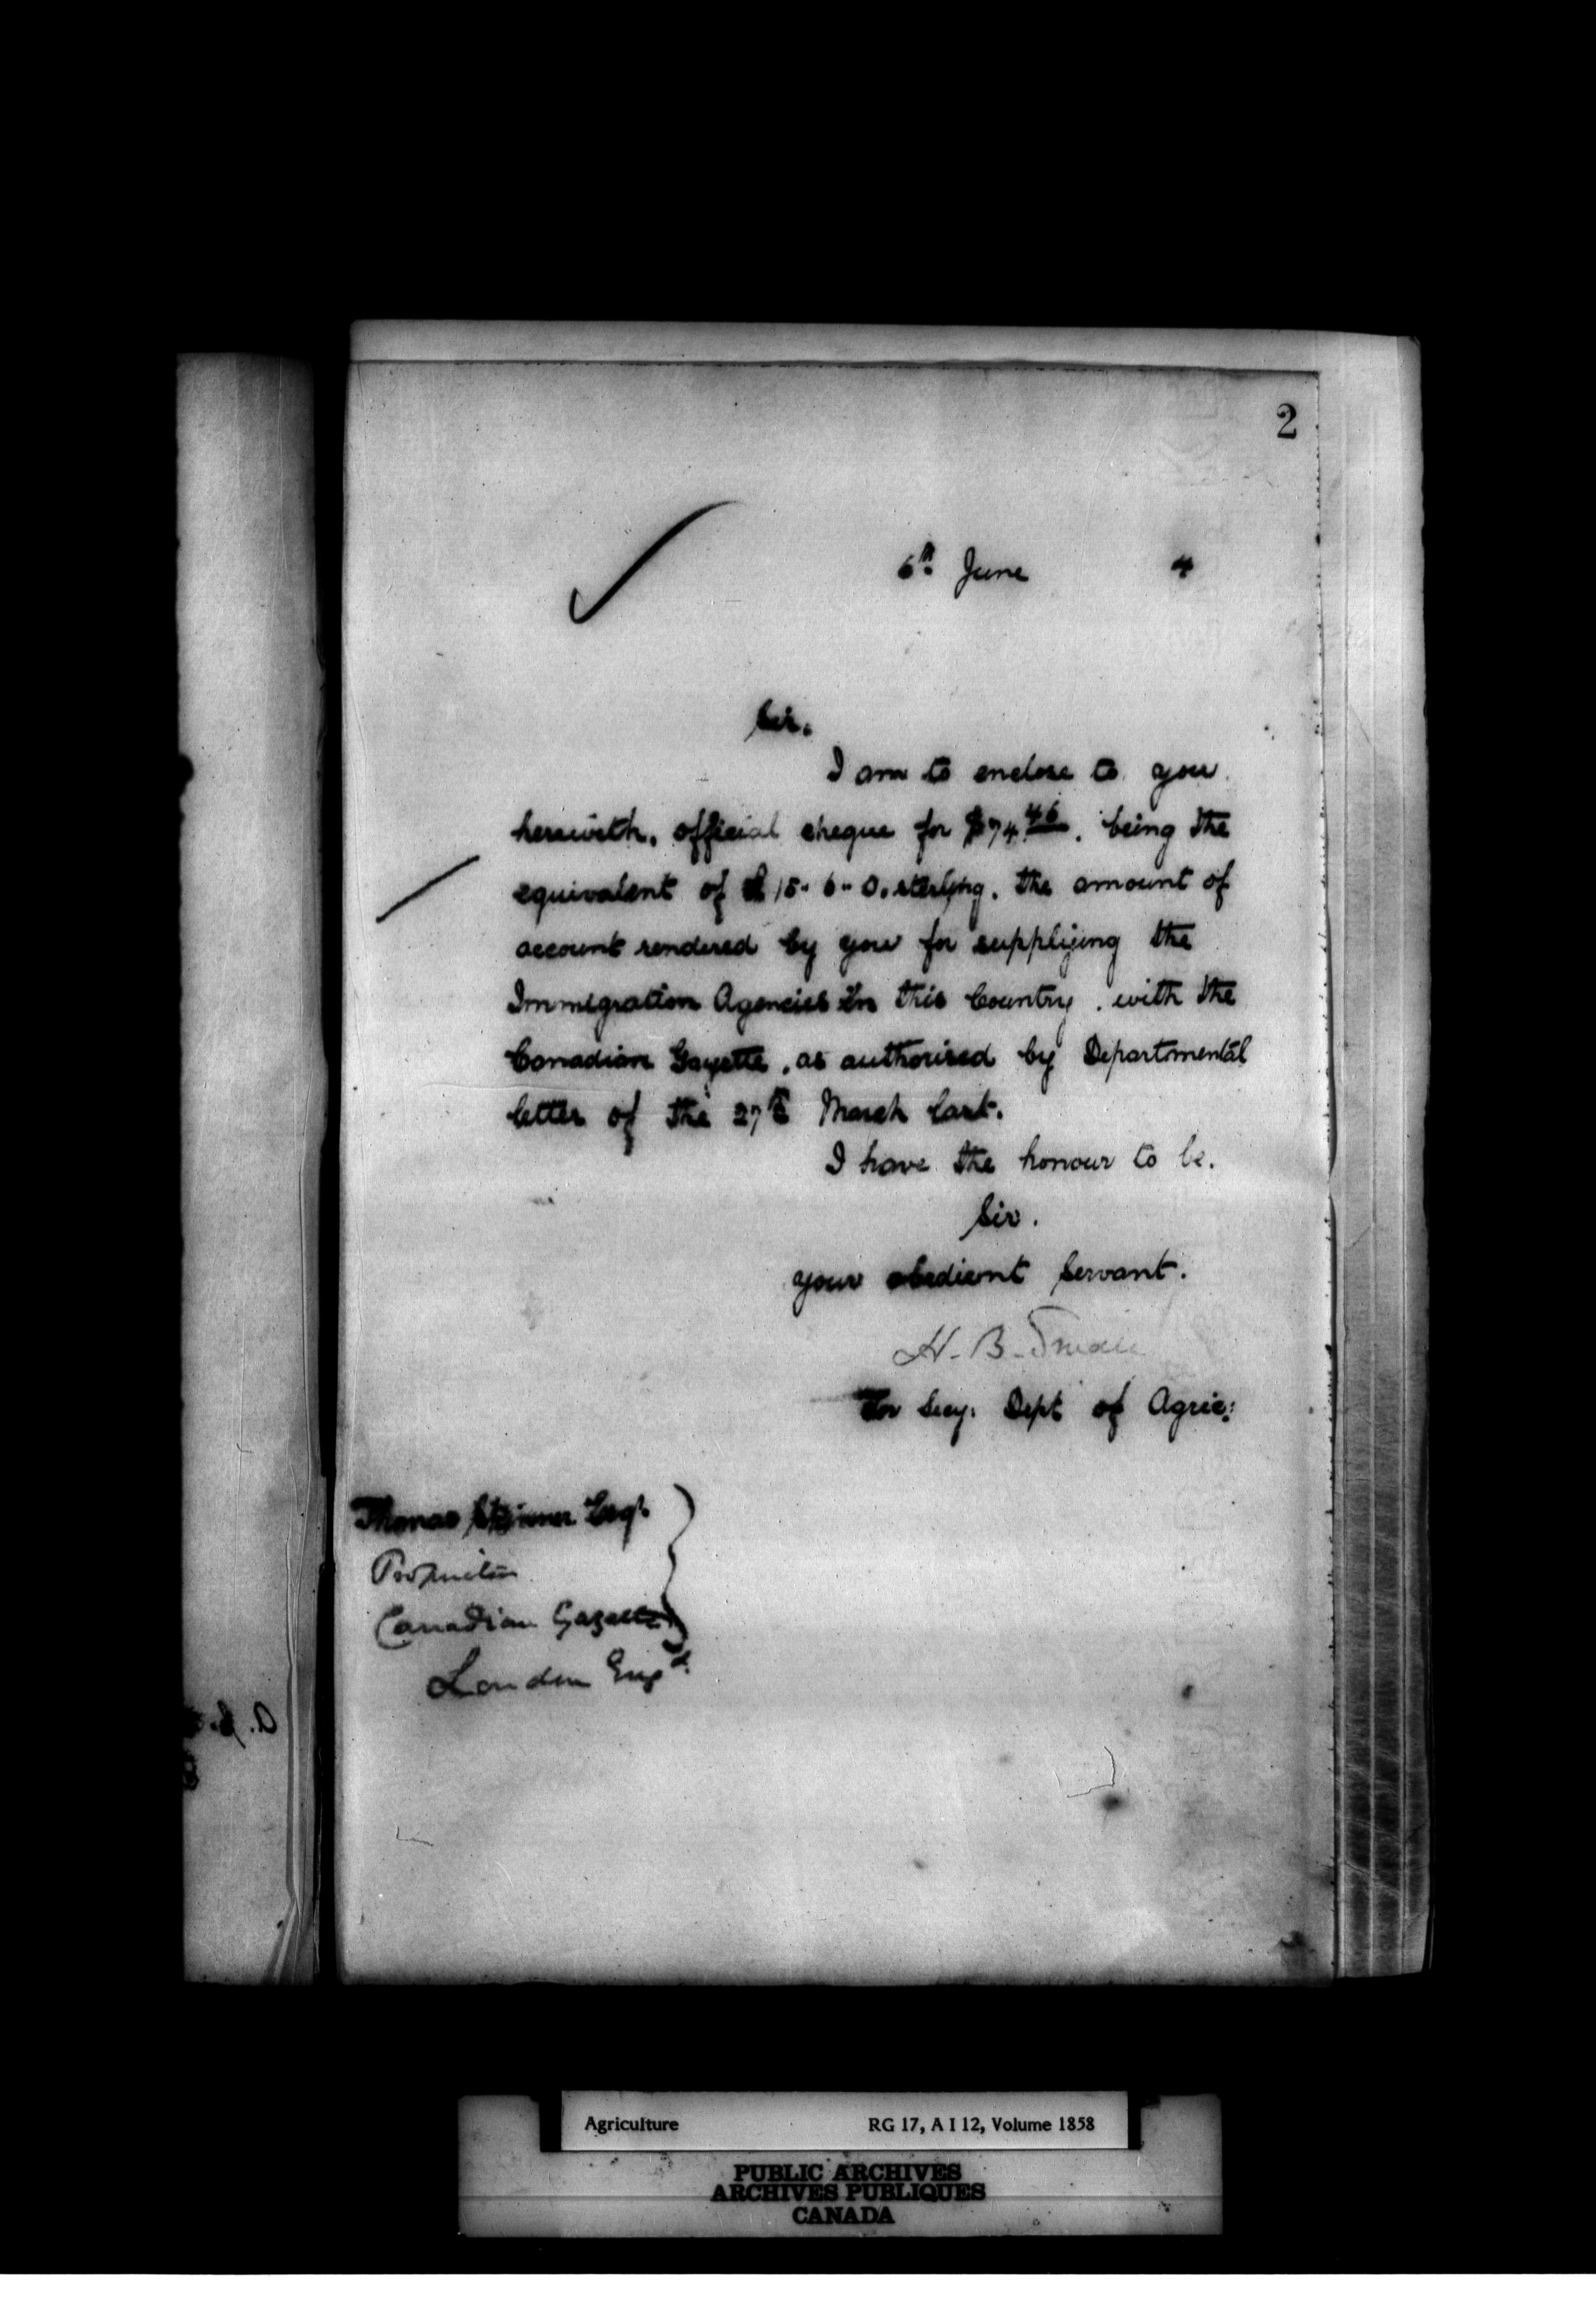 2
6th June 4
Sir.
I am to enclose to you
herewith, official cheque for $74.46. being the
equivalent of £15.. 6.. 0. sterling. the amount of
account rendered by you for supplying the
Immigration Agencies in this Country. with the
Canadian Gazette. as authorised by Departmental
letter of the 27th March last.
I have the honour to be.
Sir.
your obedient Servant.
H. B. Small
For Secy. Dept of Agric:
Thomas Skinner Esqr.
Proprietor
Canadian Gazette
London Engd.
Agriculture RG 17, A I 12, Volume 1858
PUBLIC ARCHIVES
ARCHIVES PUBLIQUES
CANADA